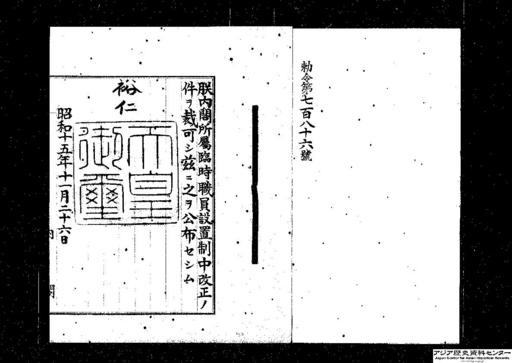 勅令第七百八十六號
朕內閣所屬臨時職員設置制中改正ノ
件ヲ裁可シ玆ニ之ヲ公布セシム
裕仁
天皇御璽
昭和十五年十一月二十六日
內閣
アジア歴史資料センター
Japan Center for Asian Historical Records